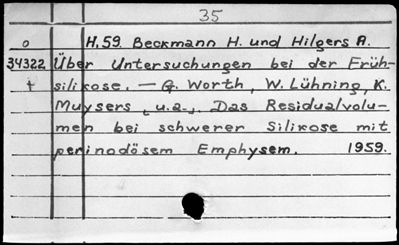 35
o H.59. Beckmann H. und Hilgers A.
34322 Über Untersuchungen bei der Früh-
+ silikose. — G. Worth, W. Lühning, K.
Muysers, u.a., Das Residualvolu-
men bei schwerer Silikose mit
perinodösem Emphysem. 1959.